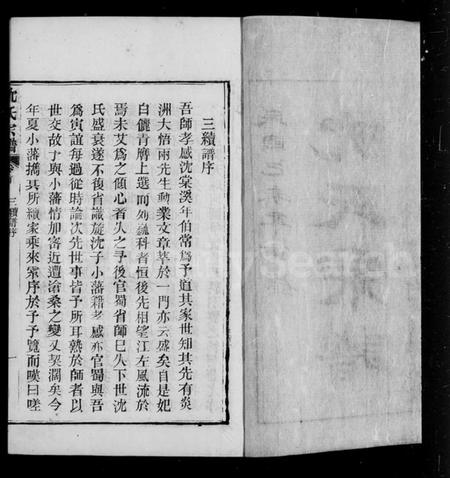 三續譜序
吾師孝感沈棠溪年伯常爲予道其家世知其先有炎
洲大悟兩先生勳業文章萃於一門亦云盛矣自是妃
白儷青膺上選而列巍科者恒後先相望江左風流於
焉未艾爲之傾心者久之予後官蜀省師已久下世沈
氏盛衰遂不復省識旋沈子小藩籍孝感亦官蜀與吾
爲寅誼每過從時論次先世事皆予所耳熟於師者以
世交故予與小藩情加密近遭滄桑之變又契濶矣今
年夏小藩擕其所續家乘來索序於予予覽而嘆曰嗟
沈氏宗譜
三續譜序
一